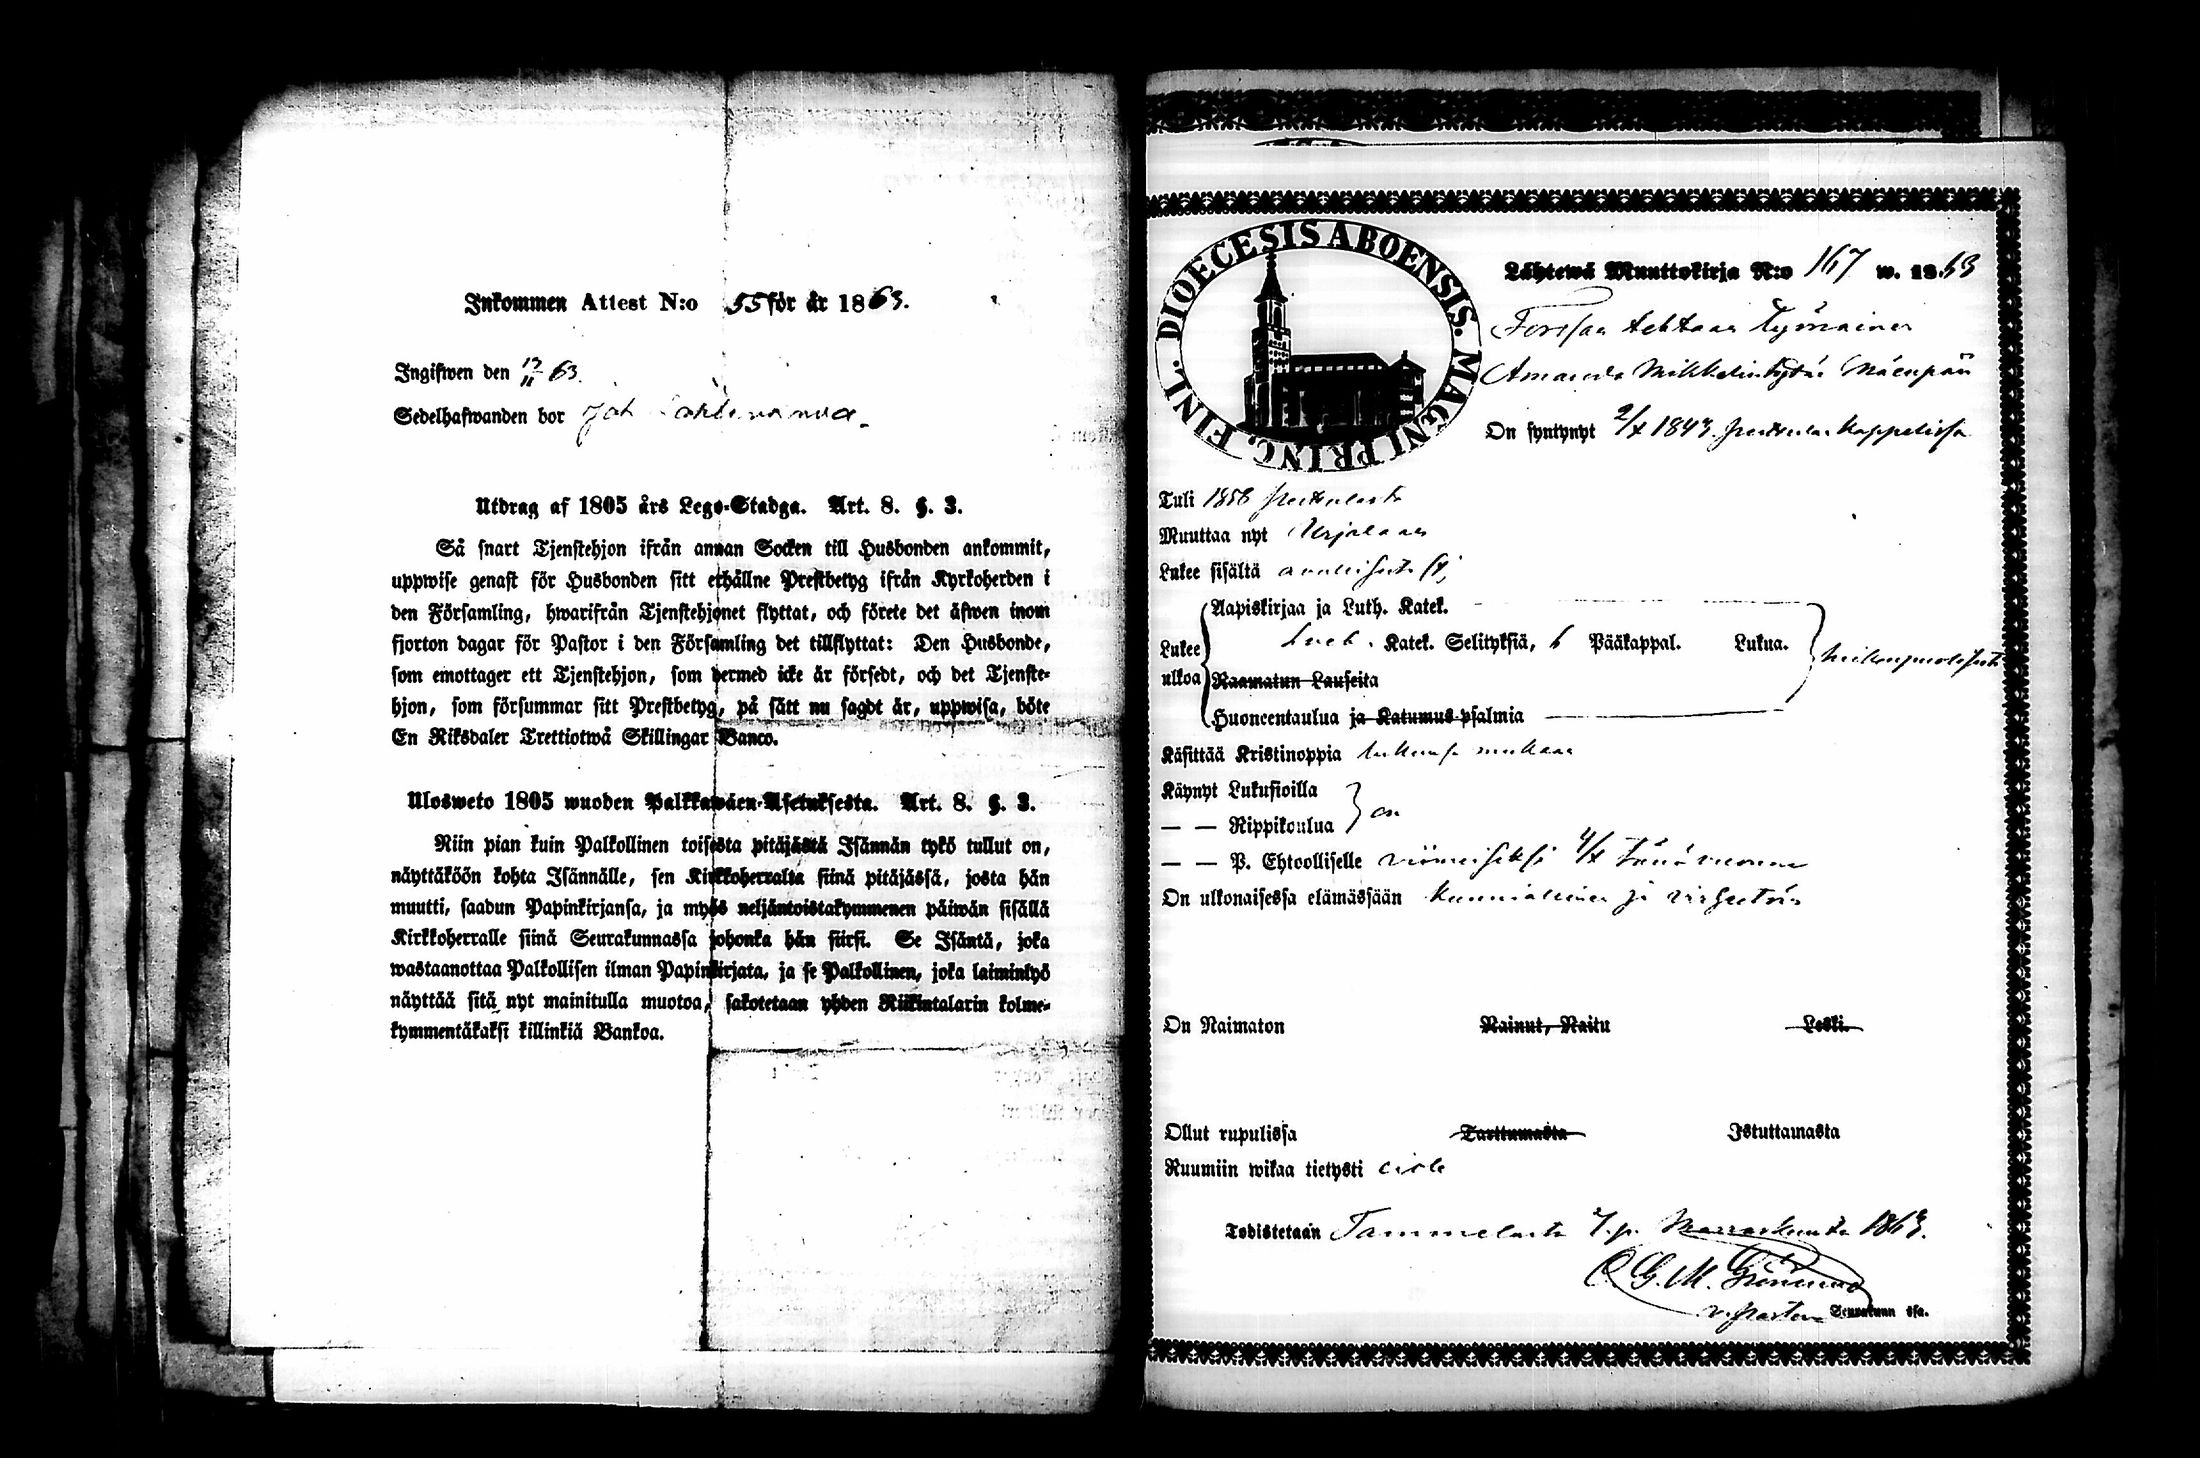 Inkommen Attest N:o 55 för år 1863.
Ingifwen den 13/11 63.
Sedelhafwanden bor
Utdrag af 1805 års Lego-Stadga. Art. 8. §. 3.
Så snart Tjenstehjon ifrån annan Socken till Husbonden ankommit,
uppwise genast för Husbonden sitt erhållne Prestbetyg ifrån Kyrkoherden i
den Församling, hwarifrån Tjenstehjonet flyttat, och förete det äfwen inom
fjorton dagar för Pastor i den Församling det tillflyttat: Den Husbonde,
som emottager ett Tjenstehjon, som dermed icke är försedt, och det Tjenste-
hjon, som försummar sitt Prestbetyg, på sätt nu sagdt är, uppwisa, böte
En Riksdaler Trettiotwå Skillingar Banco.
Ulosweto 1805 wuoden Palkkawäen-Asetuksesta. Art. 8. §. 3.
Niin pian kuin Palkollinen toisesta pitäjästä Isännän tykö tullut on,
näyttäköön kohta Isännälle, sen Kirkkoherralta siinä pitäjässä, josta hän
muutti, saadun Papinkirjansa, ja myös neljäntoistakymmenen päiwän sisällä
Kirkkoherralle siinä Seurakunnassa johonka hän siirsi. Se Isäntä, joka
wastaanottaa Palkollisen ilman Papinkirjata, ja se Palkollinen, joka laiminlyö
näyttää sitä nyt mainitulla muotoa, sakotetaan yhden Riikintalarin kolme-
kymmentäkaksi killinkiä Bankoa.
DIOECESIS ABOENSIS. MAGNI PRINC. FINL.
Lähtewä Muuttokirja N:o 167 w. 1863
Forssan tehtaan työnainen
Amanda Mikkelintytär
On syntynyt 2/X 1843 kappelissa
Tuli 1856
Muuttaa nyt Urjalaan
Lukee sisältä
Lukee ulkoa
Aapiskirjaa ja Luth. Katek.
Katek. Selityksiä, 6 Pääkappal. Lukua.
Raamatun Lauseita
Huoneentaulua ja Katumus-psalmia
Käsittää Kristinoppia lukunsa mukaan
Käynyt Lukusioilla
— — Rippikoulua } on
— — P. Ehtoolliselle viimeiseksi 4/X tänä vuonna
On ulkonaisessa elämässään kunniallinen ja
On Naimaton Nainut, Naitu Leski.
Ollut rupulissa Tarttumasta Istuttamasta
Ruumiin wikaa tietysti ei ole
Todistetaan Tammelasta 7. p. Marraskuuta 1863.
G. M.
v. pastori Seurakunn ssa.